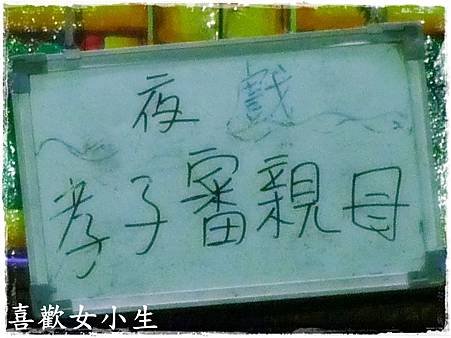 夜戲
孝子審親母
喜歡女小生